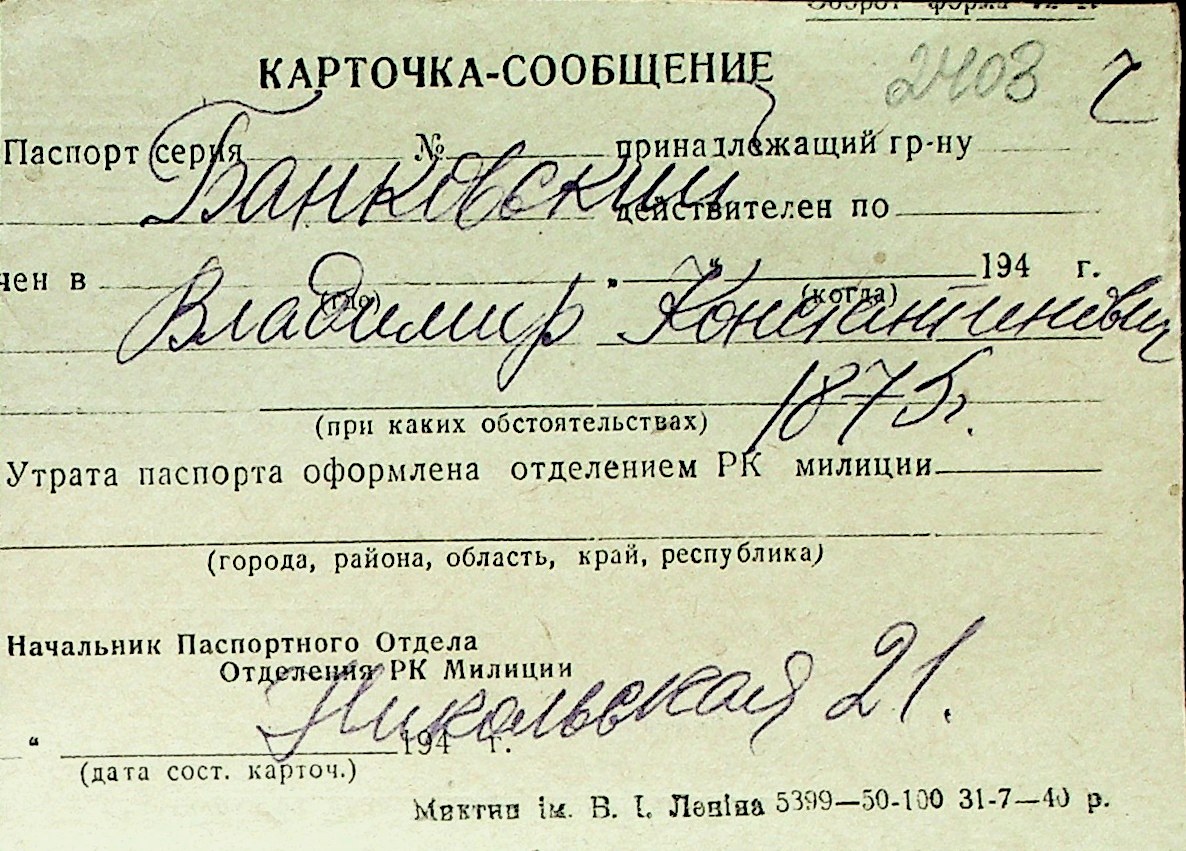 Оборот форма № К
КАРТОЧКА-СООБЩЕНИЕ 2403
Паспорт серия № принадлежащий гр-ну
Банковский
действителен по
чен в " " 194 г.
(где) (когда)
Владимир Константинович
1875 г.
(при каких обстоятельствах)
Утрата паспорта оформлена отделением РК милиции
(города, района, область, край, республика)
Начальник Паспортного Отдела
Отделения РК Милиции
Никольская 21.
" 194 г.
(дата сост. карточ.)
Миктип ім. В. І. Леніна 5399—50-100 31-7—40 р.